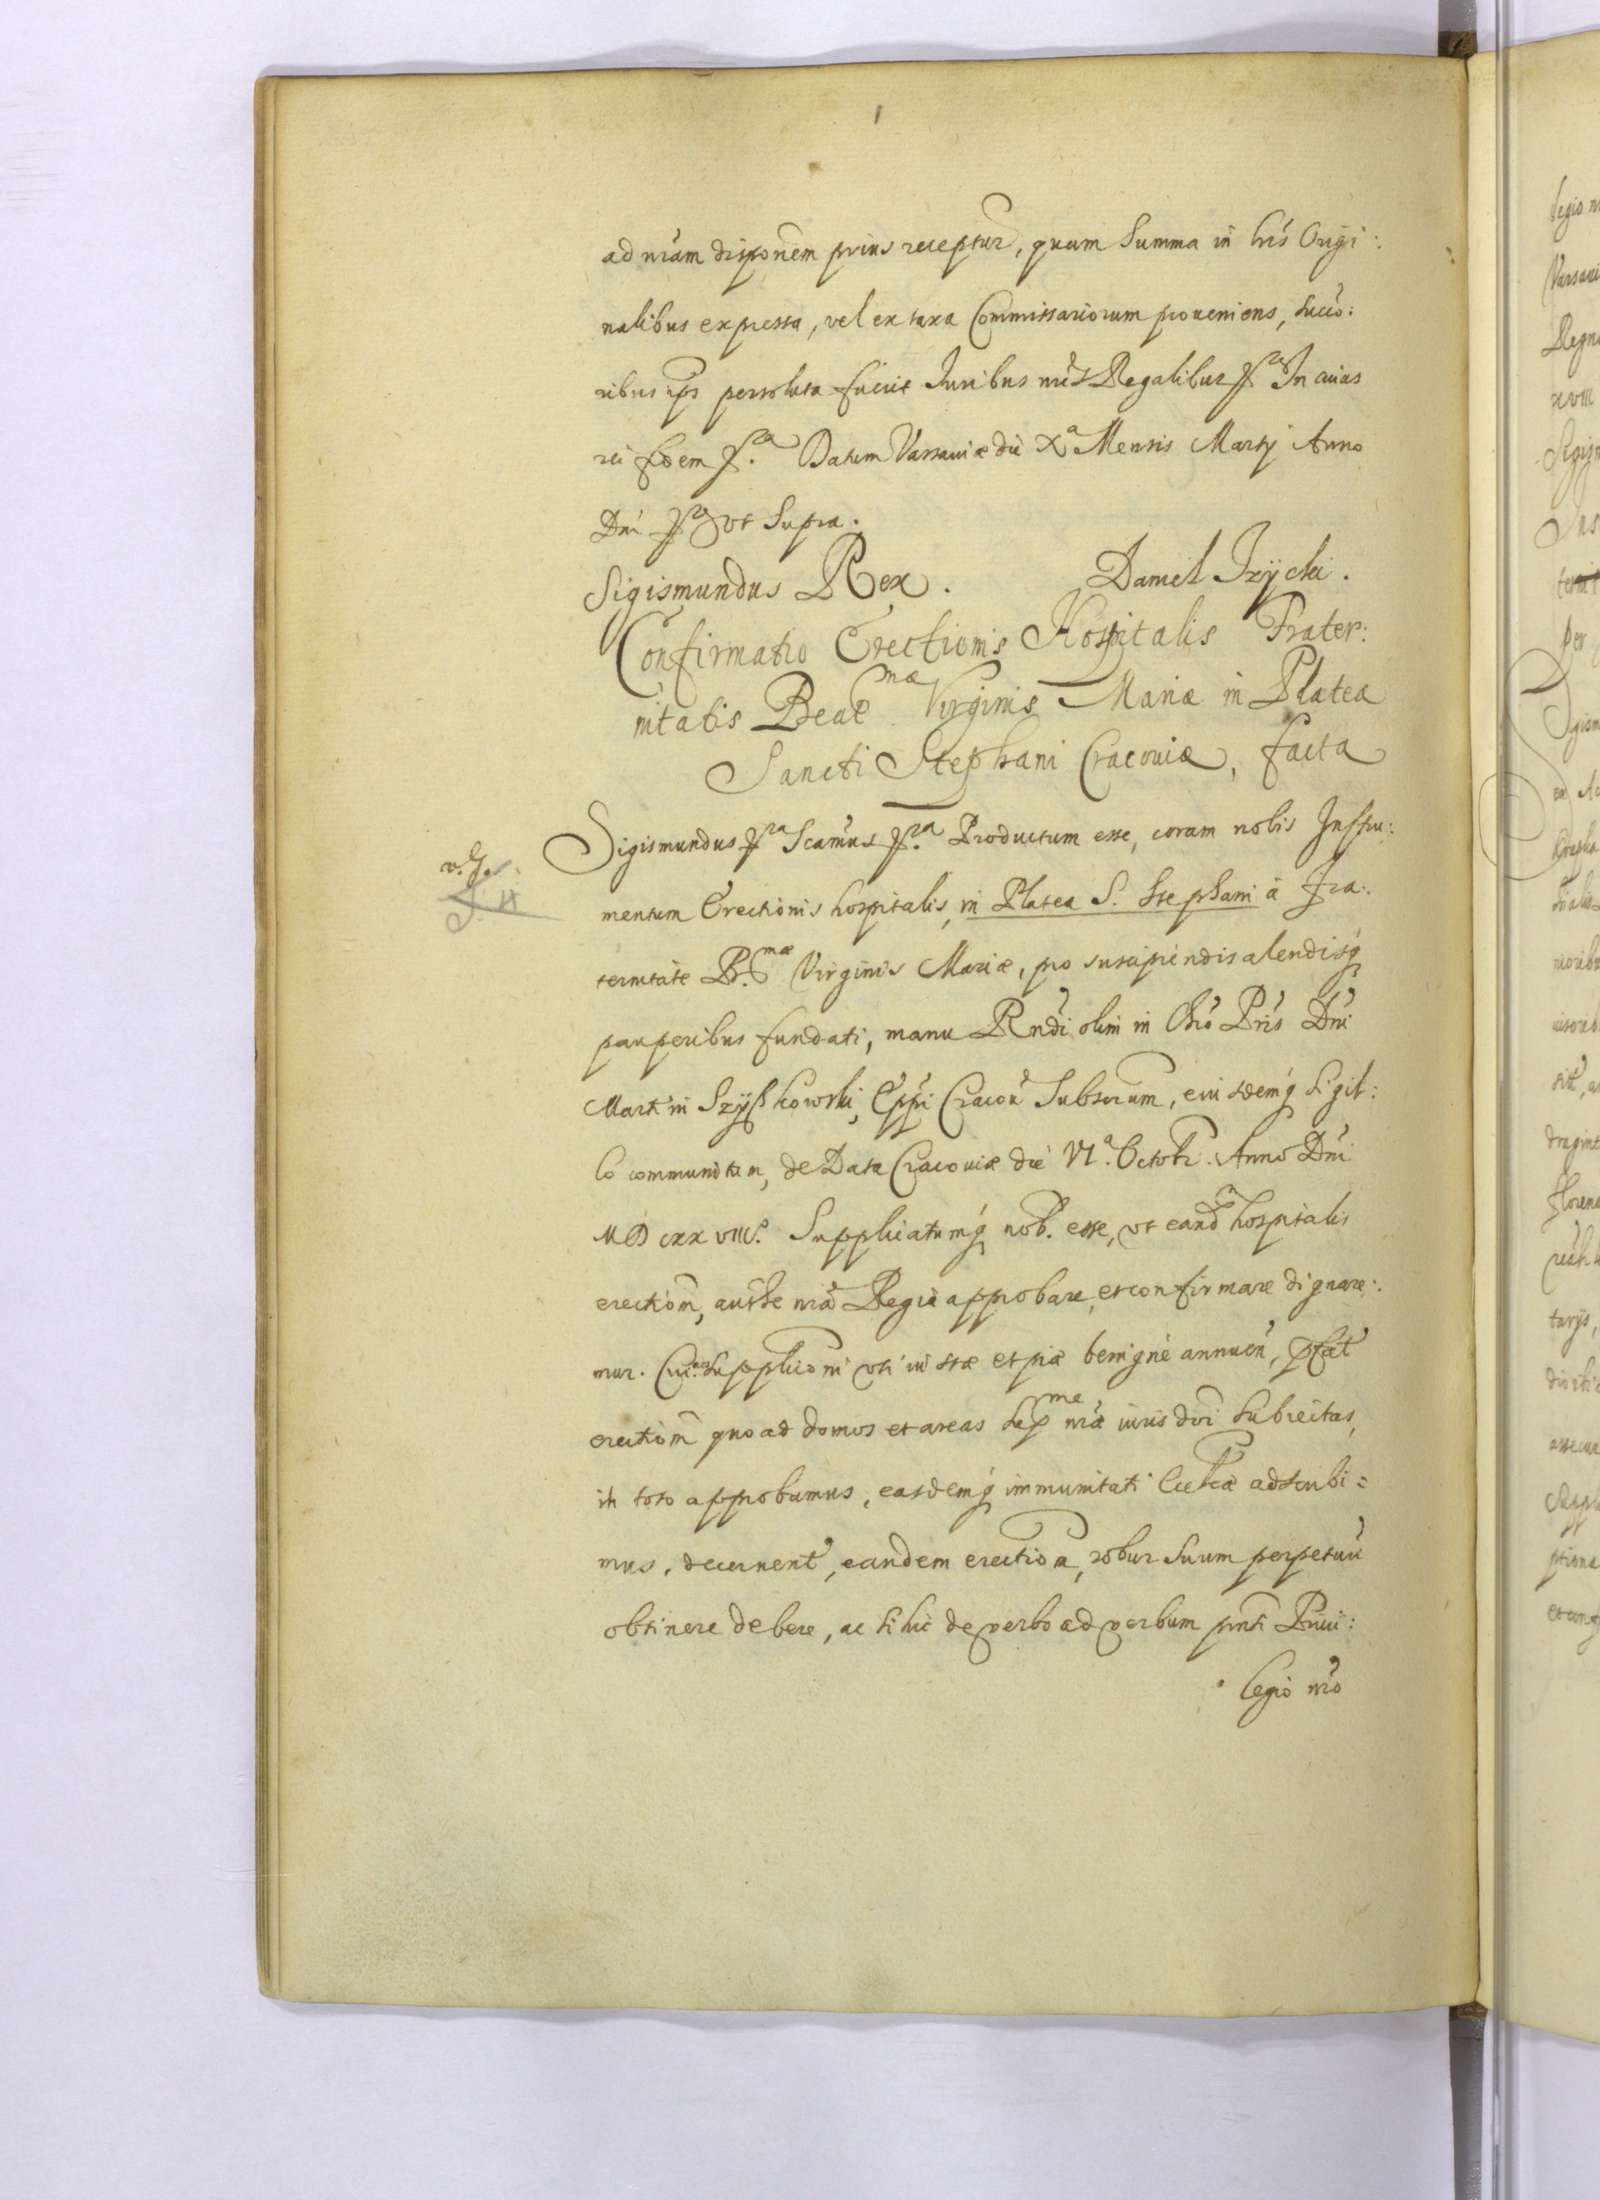 ad nrām disponem prius receptur, quam Summa in lris Origi:
nalibus expressa, vel ex taxa Commissariorum proueniens, succō:
ribus ips persoluta fuerit Juribus nris Regalibus pp In cuius
rei fidem pp. Datum Varsauiæ die Xa Mensis Martij Anno
Dni pp ut Supra.
Sigismundus Rex. Daniel Izÿcki.
Confirmatio Erectionis Hospitalis Frater:
nitatis Beatmæ Virginis Mariæ in Platea
Sancti Stephani Cracouiæ, facta
Sigismundus Scamus Productum esse, coram nobis Instru:
v. G.
mentum Erectionis hospitalis, in Platea S. Stephani à Fra:
ternitate B.mæ Virginis Mariæ, pro suscipiendis alendisq
pauperibus fundati, manu Rndi olim in Chō Pris Dni
Martini Szÿßkowski, Eppi Cracou Subscrum, eiusdemq sigil:
lo communitum, de Data Cracouiæ die VIa. Octobr. Anno Dni
MDCXXVIII. Supplicatumq nob. esse, ut eand hospitalis
erectiom, autthe nrā Regia approbare, et confirmare dignare:
mur. Cui supplicōni uti iustæ et piæ benignè annuen, pfat
erectiom quoad domos et areas nræ iuris dōi subiectas,
in toto approbamus, easdemq immunitati Ecclcæ adscribi:
mus, decernent, eandem erectiom, robur suum perpetuū
obtinere debere, ac si hic de verbo ad verbum pnti Priui:
legio nrō